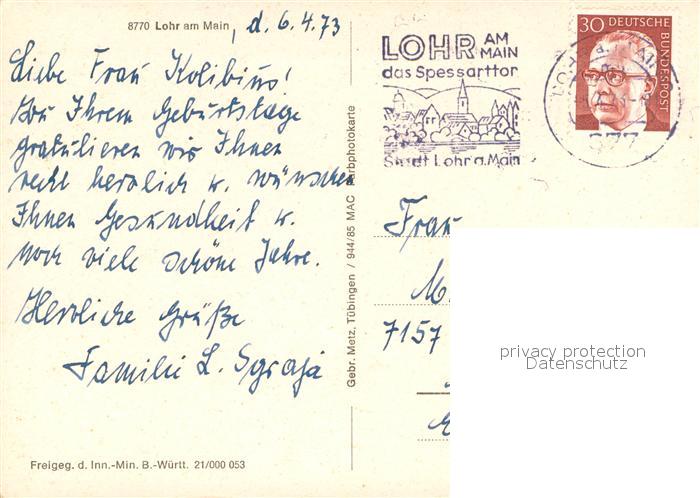 8770 Lohr am Main, d. 6.4.73
Liebe Frau Kolibius!
Zu Ihrem Geburtstage
gratulieren wir Ihnen
recht herzlich u. wünschen
Ihnen Gesundheit u.
noch viele schöne Jahre.
Herzliche Grüße
Familie L. Sgraja
Freigeg. d. Inn.-Min. B.-Württ. 21/000 053
Gebr. Metz, Tübingen / 944/85 MAC Farbphotokarte
LOHR AM MAIN
das Spessarttor
Stadt Lohr a. Main
30 DEUTSCHE
BUNDESPOST
877
Frau
M.
7157
privacy protection
Datenschutz